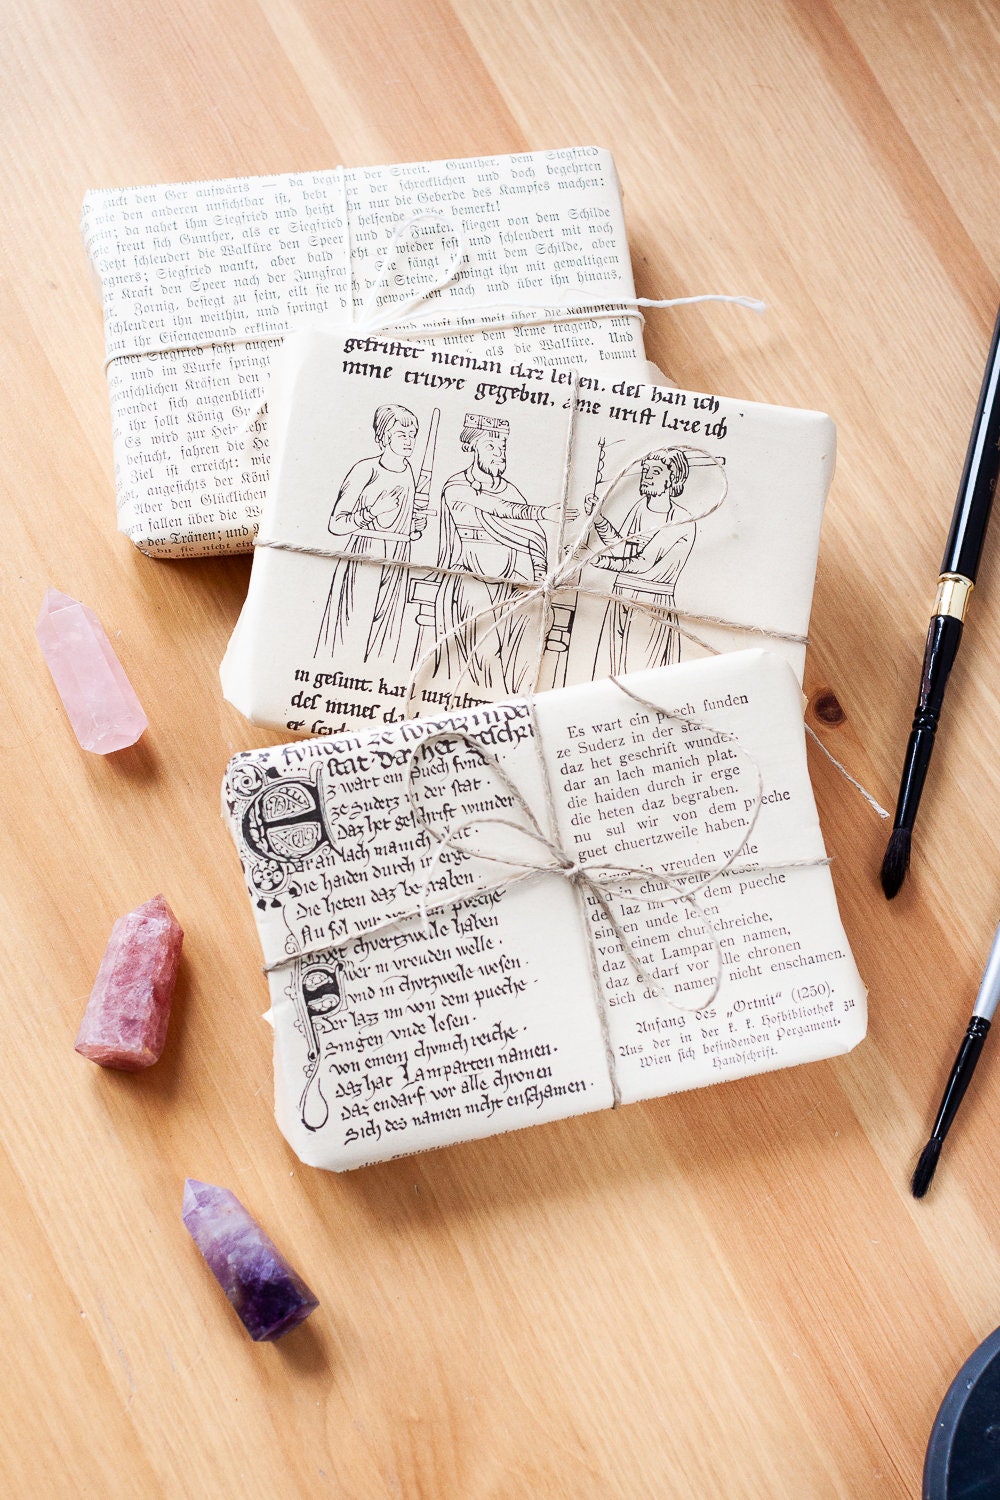 zuckt den Ger aufwärts — da beginnt der Streit. Gunther, dem Siegfried
wie den anderen unsichtbar ist, bebt vor der schrecklichen und doch begehrten
da nahet ihm Siegfried und heißt ihn nur die Geberde des Kampfes machen:
wie freut sich Gunther, als er Siegfrieds helfende Nähe bemerkt!
Jetzt schleudert die Walküre den Speer und die Funken fliegen von dem Schilde
Gegners; Siegfried wankt, aber bald steht er wieder fest und schleudert mit noch
Kraft den Speer nach der Jungfrau. Sie fängt ihn mit dem Schilde, aber
Zornig, besiegt zu sein, eilt sie nach dem Steine, schwingt ihn mit gewaltigem
schleudert ihn weithin, und springt dem geworfenen nach und über ihn hinaus,
ihr Eisengewand erklingt. und wirft ihn weit über die
aber Siegfried faßt augen unter dem Arme tragend, mit
und im Wurfe springt als die Walküre. Und
menschlichen Kräften den Mannen, kommt
wendet sich augenblick
ihr sollt König
Es wird zur Heimkehr
besucht, fahren die
Ziel ist erreicht: wie
angesichts der
Aber den Glücklichen
fallen über die
der Tränen; und
du sie nicht
gefristet nieman daz leben. des han ich
mine truwe gegebin. ane urist laze ich
in gesunt. karl
des mines
er
funden ze suderz in der
stat. daz het geschri
Ez wart ein puech funden.
ze Suderz in der stat.
daz het geschrift wunder
dar an lach manich plat.
die haiden durch ir erge
die heten daz begraben.
Nu sol wir von dem pueche
guet chvertzweile haben
Swer in vreuden welle.
vnd in chvrtzweile wesen.
der laz im von dem pueche.
Singen vnde lesen.
von einem chvnich reiche.
daz hat Lamparten namen.
daz endarf vor alle chronen
Sich des namen nicht enschamen.
Es wart ein puech funden
ze Suderz in der stat,
daz het geschrift wunder,
dar an lach manich plat.
die haiden durch ir erge
die heten daz begraben.
nu sul wir von dem pueche
guet chuertzweile haben.
Swer in vreuden welle
und in churzweile wesen,
der laz im vor dem pueche
singen unde lesen
von einem chunichreiche,
daz hat Lamparten namen,
daz endarf vor alle chronen
sich des namen nicht enschamen.
Anfang des „Ortnit“ (1250).
Aus der in der k. k. Hofbibliothek zu
Wien sich befindenden Pergament-
Handschrift.